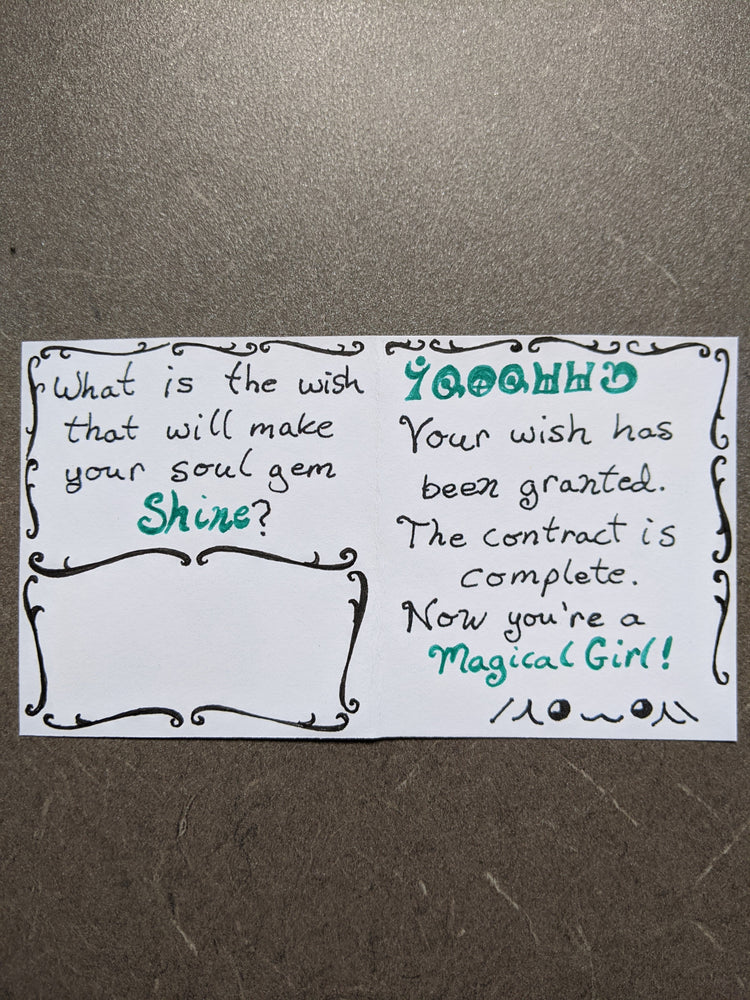 What is the wish
that will make
your soul gem
Shine?
Your wish has
been granted.
The contract is
complete.
Now you're a
Magical Girl!
/人●‿●人\